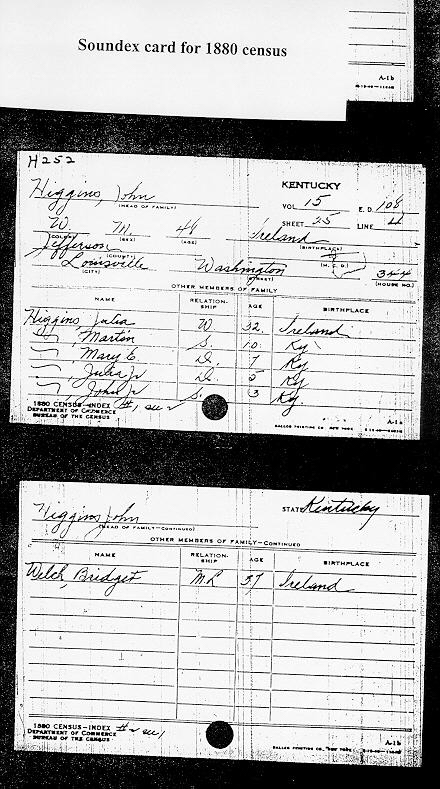 Soundex card for 1880 census
A-1b
H252
Higgins, John
(HEAD OF FAMILY)
KENTUCKY
VOL. 15 E. D. 108
SHEET 25 LINE
W. M. 48 Ireland
(COLOR) (SEX) (AGE) (BIRTHPLACE)
Jefferson
(COUNTY) (M. C. D.)
Louisville Washington 344
(CITY) (STREET) (HOUSE NO.)
OTHER MEMBERS OF FAMILY
NAME RELATION-SHIP AGE BIRTHPLACE
Higgins, Julia W. 32 Ireland
Martin S. 10 Ky
Mary E D. 7 Ky
Julia Jr D. 5 Ky
John Jr S. 3 Ky
1880 CENSUS—INDEX #1, see 2
DEPARTMENT OF COMMERCE
BUREAU OF THE CENSUS
A-1a
DALLAS PRINTING CO., NEW YORK
Higgins John
(HEAD OF FAMILY—CONTINUED)
STATE Kentucky
OTHER MEMBERS OF FAMILY—CONTINUED
NAME RELATION-SHIP AGE BIRTHPLACE
Welch, Bridget M.L 57 Ireland
1880 CENSUS—INDEX #2 see 1
DEPARTMENT OF COMMERCE
BUREAU OF THE CENSUS
A-1b
DALLAS PRINTING CO., NEW YORK